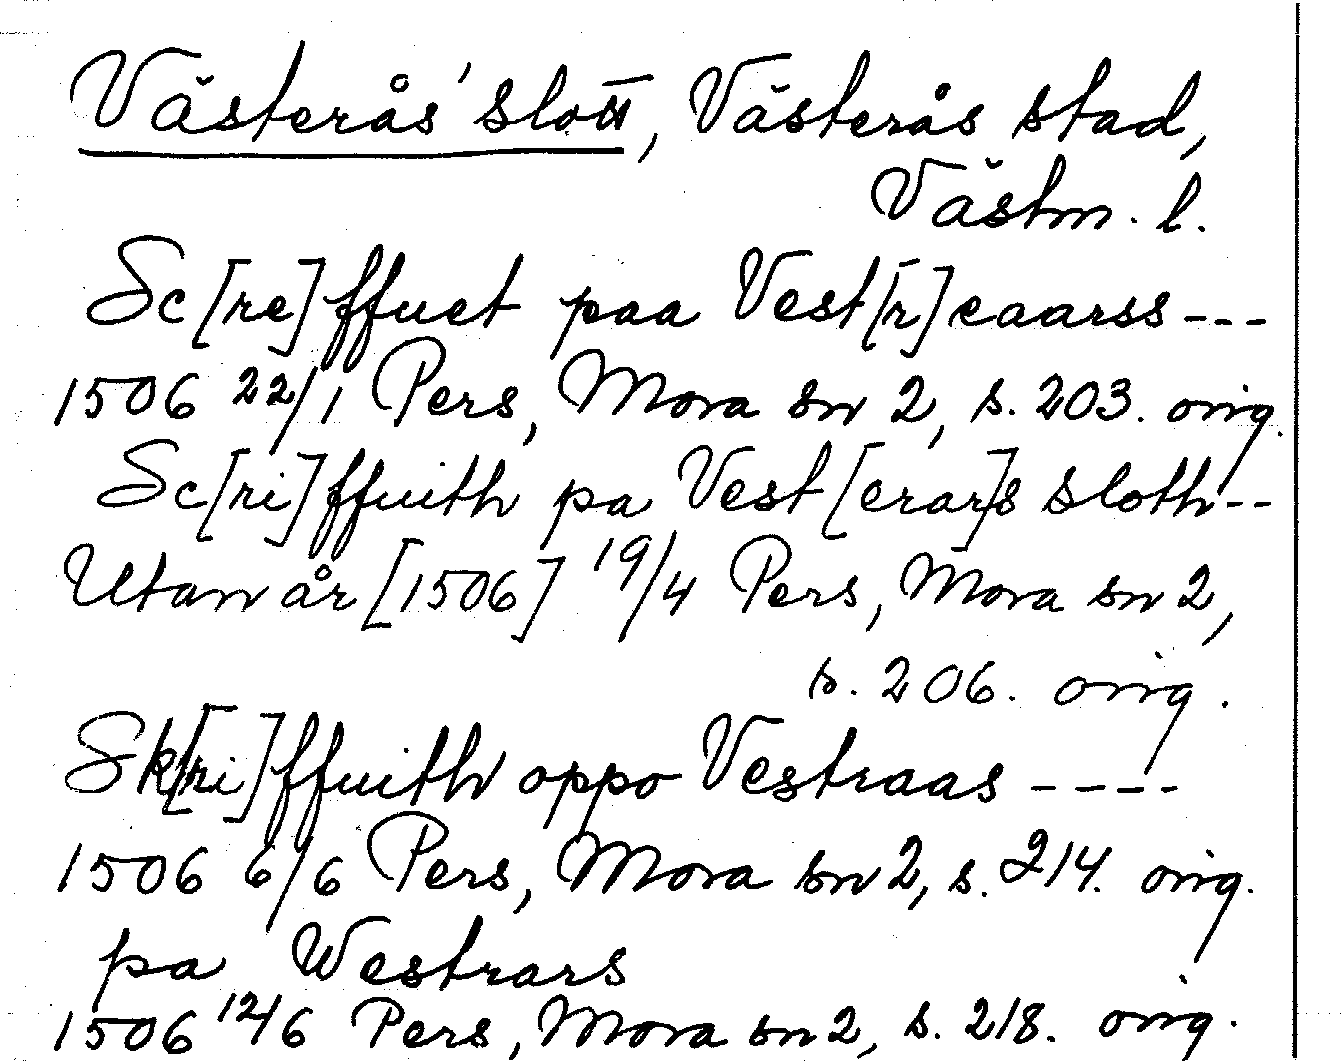 Västerås' slott, Västerås stad,
Västm. l.
Sc[re]ffuet paa Vest[r]eaarss ---
1506 22/1 Pers, Mora sn 2, s. 203. orig.
Sc[ri]ffuith pa Vest[erar]s sloth --
Utan år [1506] 19/4 Pers, Mora sn 2,
s. 206. orig.
Sk[ri]ffuith oppo Vestraas ----
1506 6/6 Pers, Mora sn 2, s. 214. orig.
pa Westrars
1506 12/6 Pers, Mora sn 2, s. 218. orig.